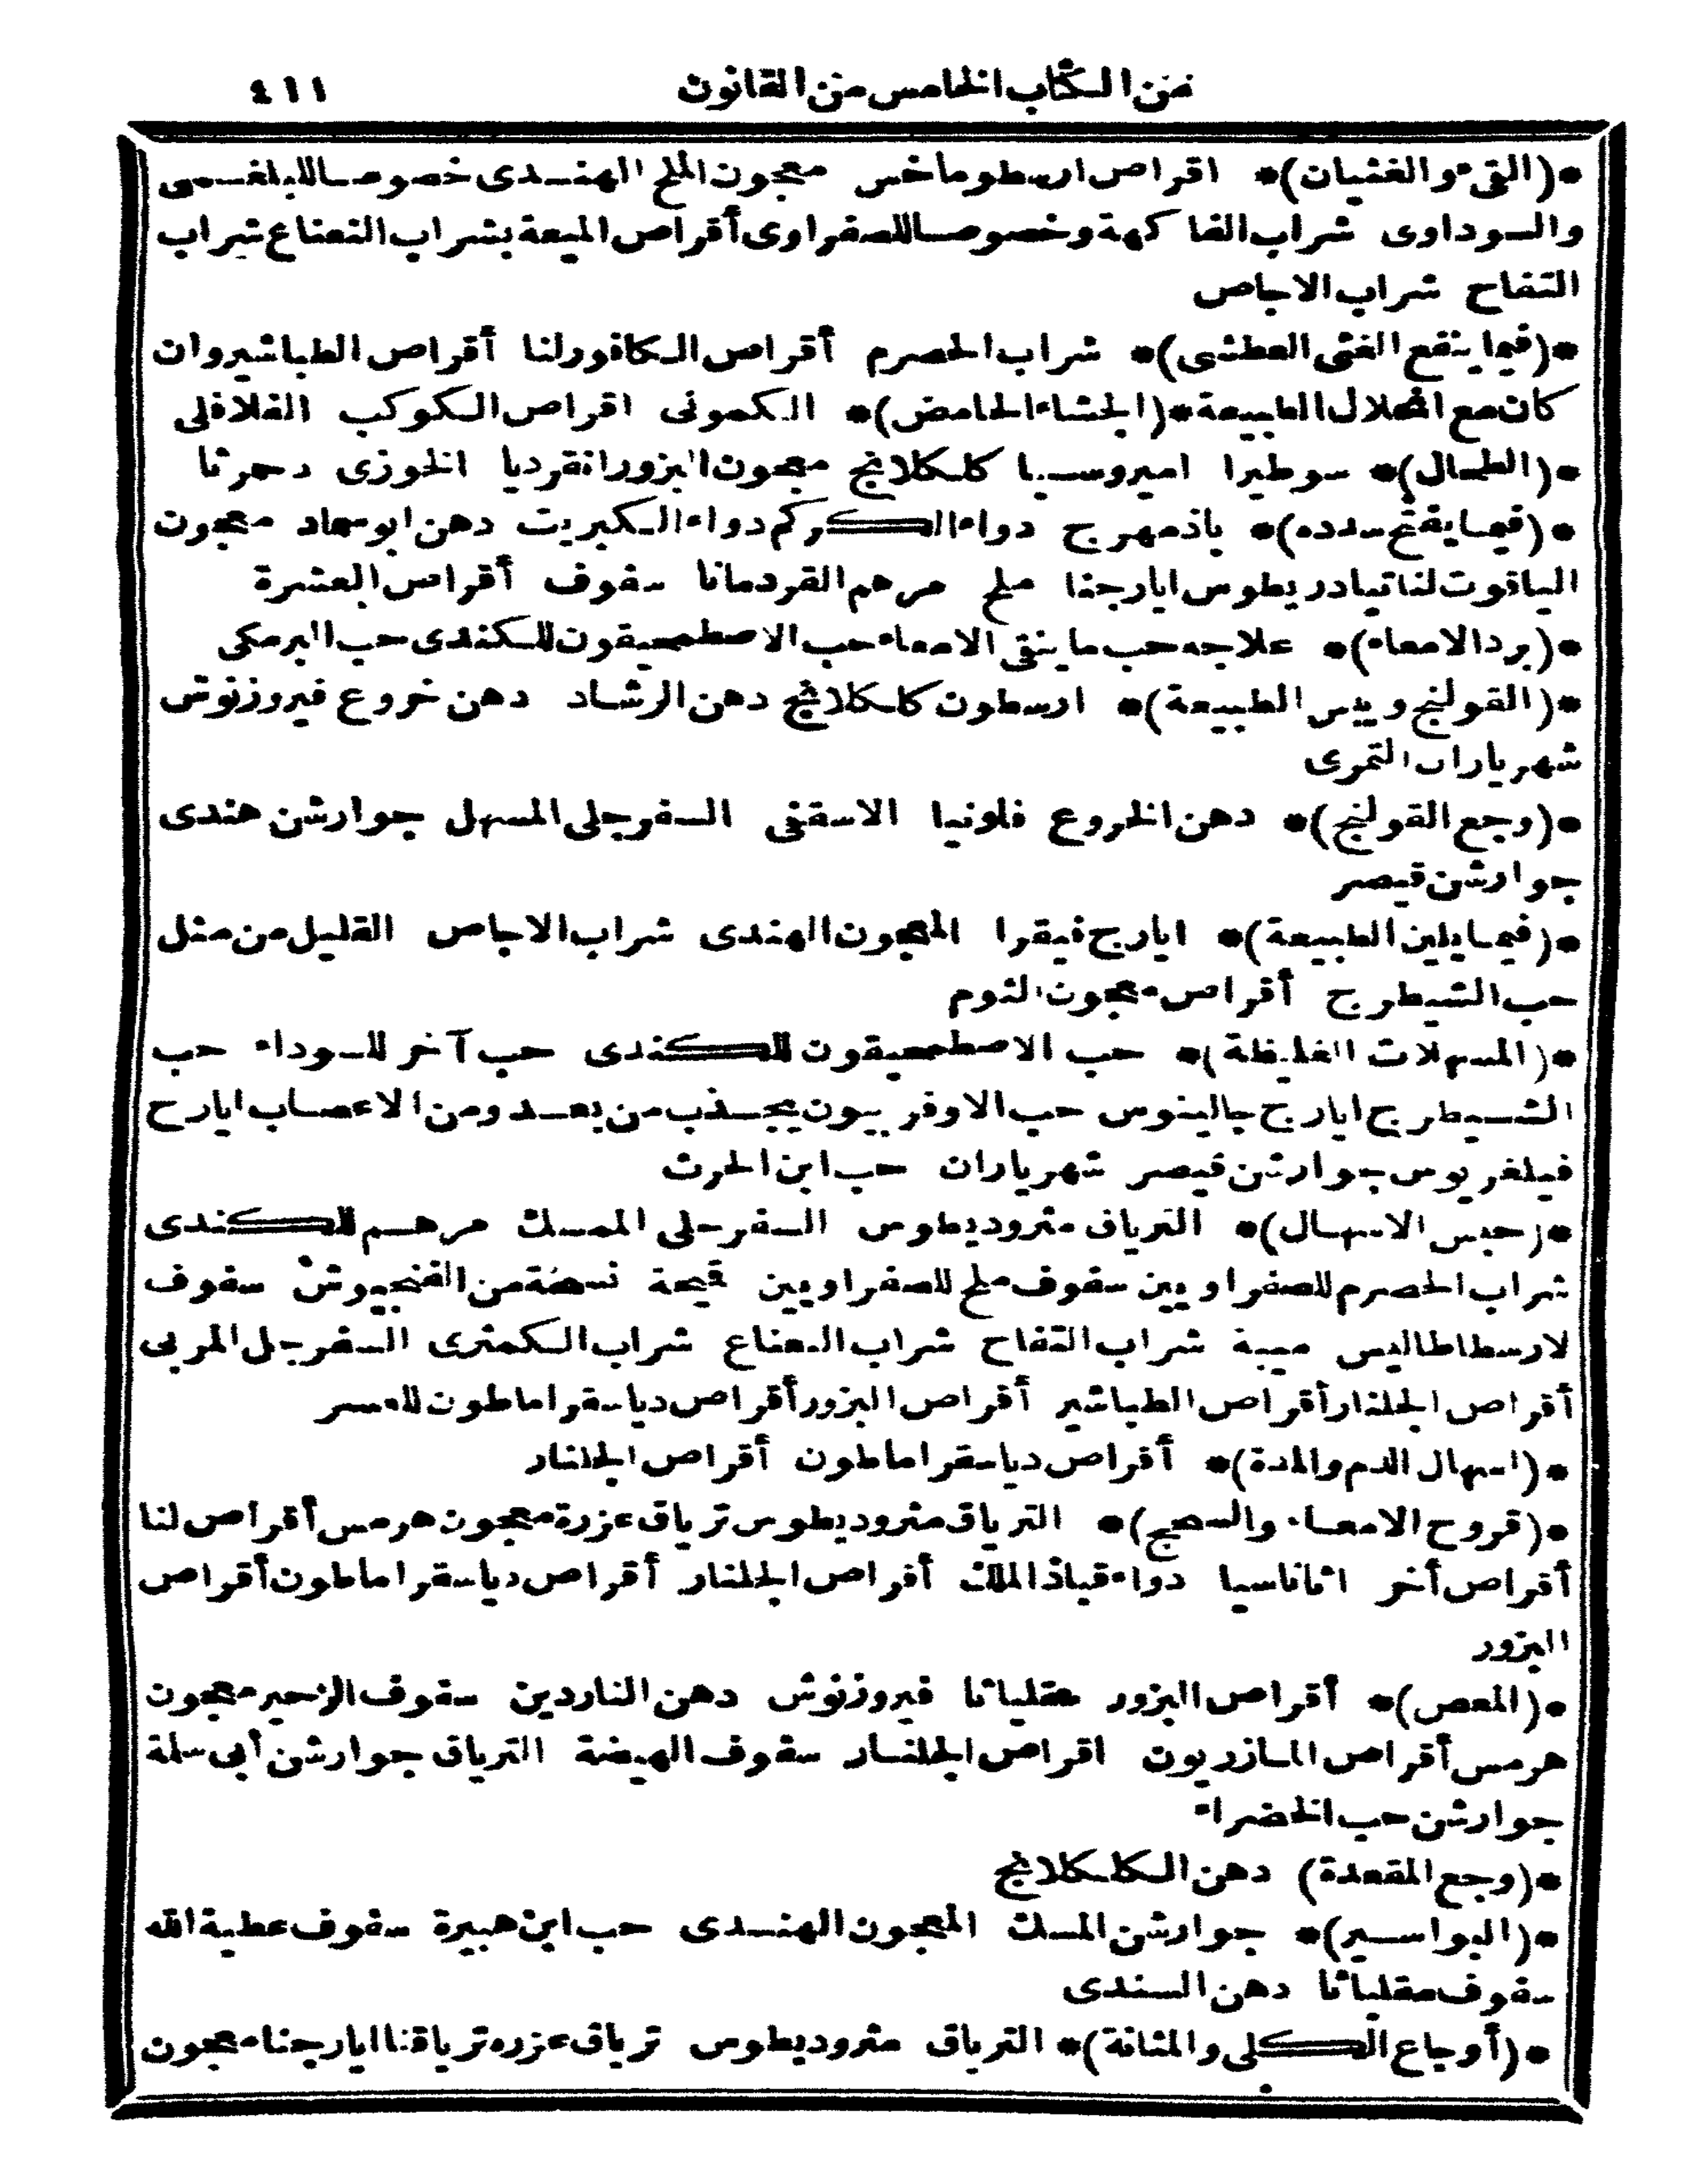 من الكتاب الخامس من القانون ٤١١
*(القىء والغثيان)* اقراص ارسطوماخس معجون الملح الهندى خصوصا للبلغمى
والسوداوى شراب الفاكهة وخصوصا للصفراوى أقراص الميعة بشراب النعناع شراب
التفاح شراب الاجاص
*(فيما ينفع الغثى العطشى)* شراب الحصرم أقراص الكافور لنا أقراص الطباشير وان
كان مع انحلال الطبيعة *(الجشاء الحامض)* الكمونى اقراص الكوكب الفلافلى
*(الطحال)* سوطيرا اميروسيا كلكلانج معجون البزور انقرديا الخوزى دحمرثا
*(فيما يفتح سدده)* باذمهرج دواء الكركم دواء الكبريت دهن ابو سهاد معجون
الياقوت لنا تيادريطوس ايارجنا ملح مرهم القردمانا سفوف أقراص العشرة
*(برد الامعاء)* علاجه حب ما ينقى الامعاء حب الاصطمحيقون للكندى حب البرمكى
*(القولنج ويبس الطبيعة)* ارسطون كلكلانج دهن الرشاد دهن خروع فيروزنوش
شهرياران التمرى
*(وجع القولنج)* دهن الخروع فلونيا الاسقفى السفرجلى المسهل جوارشن هندى
جوارشن قيصر
*(فيما يلين الطبيعة)* ايارج فيقرا المعجون الهندى شراب الاجاص القليل من مثل
حب الشيطرج أقراص معجون الثوم
*(المسهلات الغليظة)* حب الاصطمحيقون للكندى حب آخر للسوداء حب
الشيطرج ايارج جالينوس حب الاوفربيون يجذب من بعد ومن الاعصاب ايارج
فيلغريوس جوارشن قيصر شهرياران حب ابن الحرث
*(حبس الاسهال)* الترياق مثروديطوس السفرجلى الممسك مرهم للكندى
شراب الحصرم للصفراويين سفوف ملح للصفراويين قميحة نسخة من الفنجيوش سفوف
لارسطاطاليس ميبة شراب التفاح شراب النعناع شراب الكمثرى السفرجل المربى
أقراص الجلنار أقراص الطباشير أقراص البزور أقراص دياسقراماطون للعسر
*(اسهال الدم والمدة)* أقراص دياسقراماطون أقراص الجلنار
*(قروح الامعاء والسحج)* الترياق مثروديطوس ترياق عزرة معجون هرمس أقراص لنا
أقراص أخر اثاناسيا دواء قباذ الملك أقراص الجلنار أقراص دياسقراماطون أقراص
البزور
*(المغص)* أقراص البزور مقلياثا فيروزنوش دهن الناردين سفوف الزحير معجون
هرمس أقراص المازريون اقراص الجلنار سفوف الهيضة الترياق جوارشن أبى سلمة
جوارشن حب الخضراء
*(وجع المقعدة) دهن الكلكلانج
*(البواسير)* جوارشن المسك المعجون الهندى حب ابن هبيرة سفوف عطية الله
سفوف مقلياثا دهن السندى
*(أوجاع الكلى والمثانة)* الترياق مثروديطوس ترياق عزره ترياقنا ايارجنا معجون